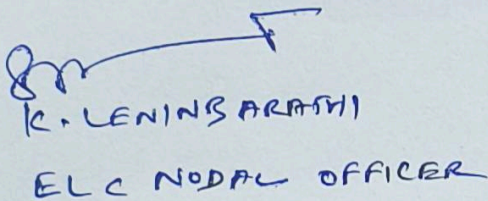 K. LENINBARATHI
ELC NODAL OFFICER